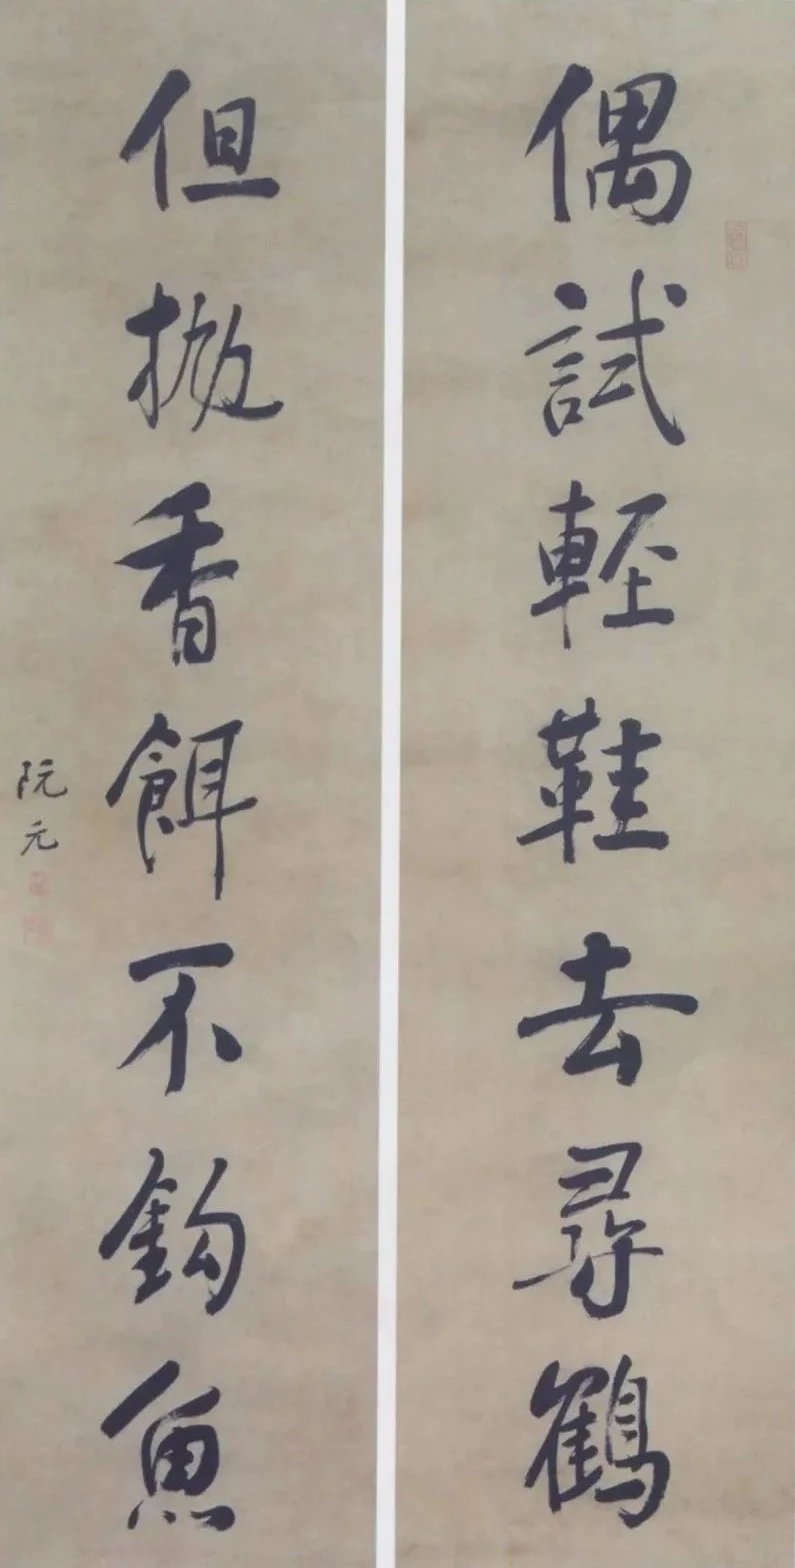 偶試輕鞋去尋鶴
但拋香餌不鈎魚
阮元